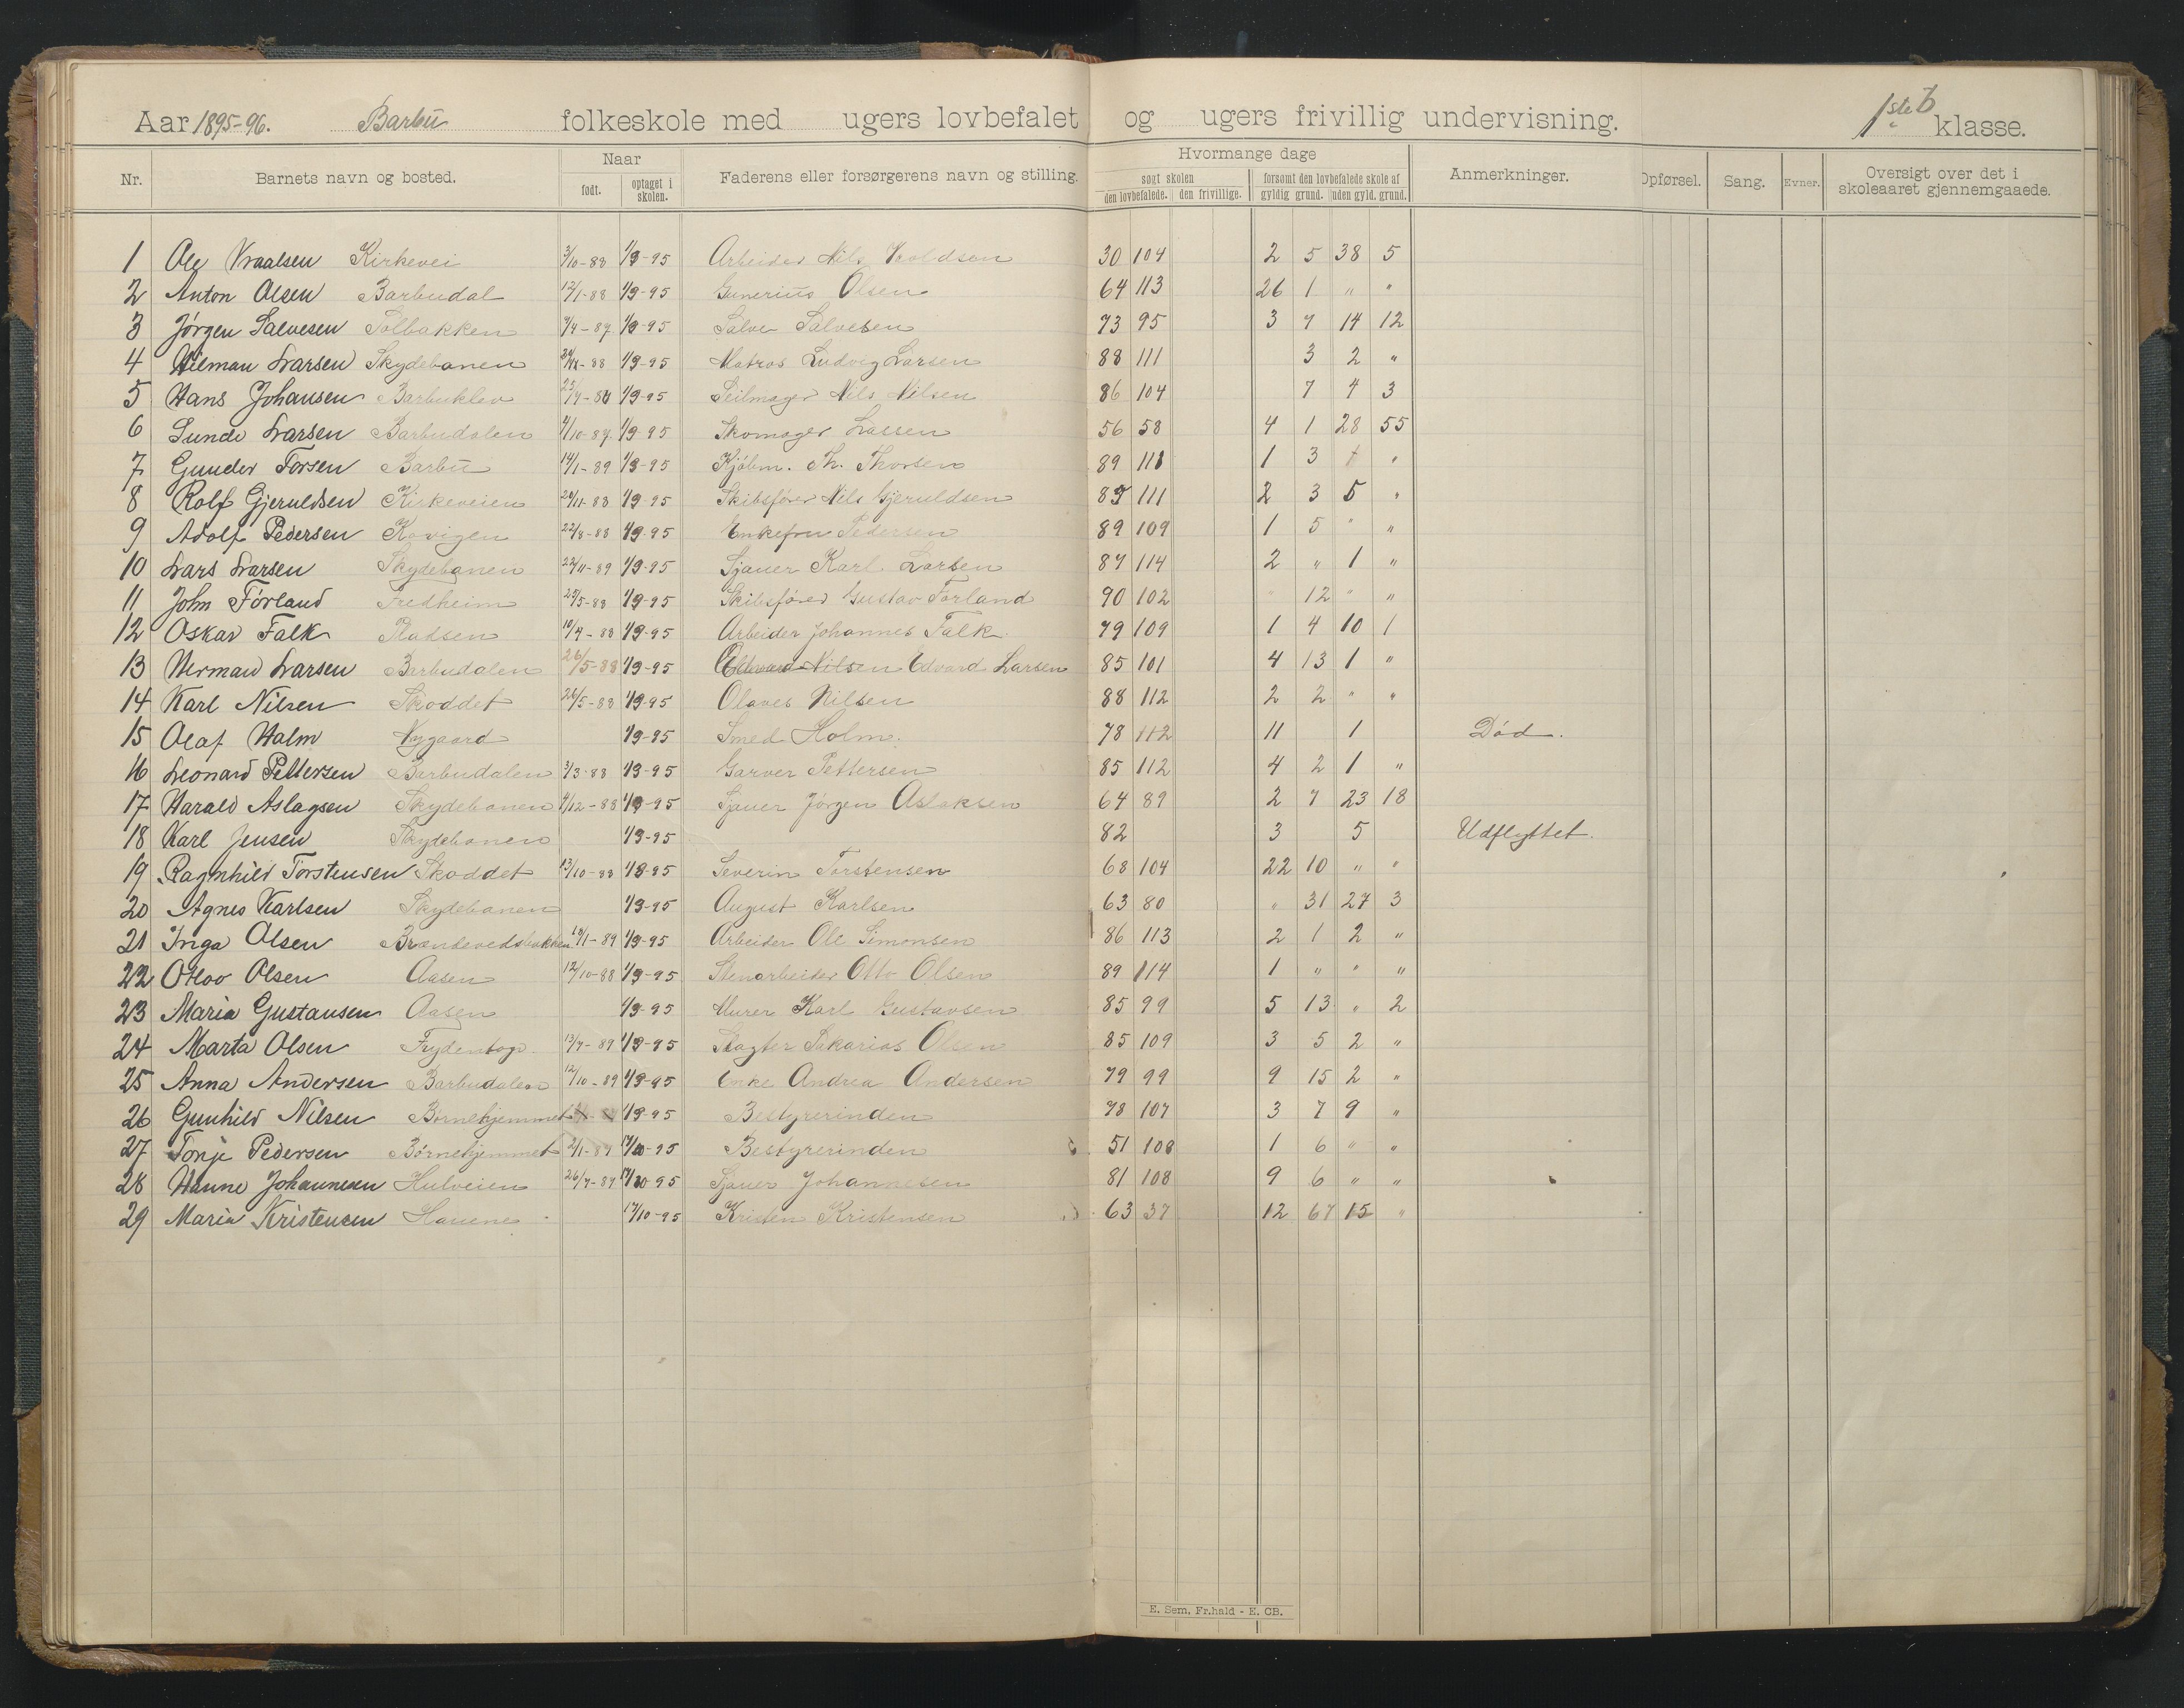 Aar 1895-96. Barbu folkeskole med ugers lovbefalet og ugers frivillig undervisning. 1ste b klasse.
Nr. Barnets navn og bosted. Naar født. optaget i skolen. Faderens eller forsørgerens navn og stilling. Hvormange dage søgt skolen den lovbefalede. den frivillige. forsømt den lovbefalede skole af gyldig grund. uden gyld. grund. Anmerkninger. Opførsel. Sang. Evner. Oversigt over det i skoleaaret gjennemgaaede.
1 Ole Vraalsen Kirkevei 3/10-88 1/9-95 Arbeider Nils 30 104 2 5 38 5
2 Anton Olsen Barbudal 12/1-88 1/9-95 Gunerius Olsen 64 113 26 1 " "
3 Jørgen Salvesen Solbakken 1/9-95 Salve Salvesen 73 95 3 7 14 12
4 Hilman Larsen Skydebanen 1/9-95 Matros Ludvig Larsen 88 111 3 2 "
5 Hans Johansen Barbuklev 1/9-95 Seilmager Nils Nilsen 86 104 7 4 3
6 Sunde Larsen Barbudalen 1/9-95 Skomager Larsen 56 58 4 1 28 55
7 Gunder Torsen Barbu 14/1-89 1/9-95 Kjøbm. Th. Thorsen 89 111 1 3 "
8 Rolf Gjeruldsen Kirkeveien 1/9-95 Skibsfører Nils Gjeruldsen 111 2 3 5 "
9 Adolf Pedersen Kovigen 22/8-88 1/9-95 Enkefru Pedersen 89 109 1 5 " "
10 Lars Larsen Skydebanen 22/11-89 1/9-95 Sjauer Karl Larsen 87 114 2 " 1 "
11 John Førland Fredheim 1/9-95 Skibsfører Gustav Førland 90 102 " 12 " "
12 Oskar Falk Pladsen 1/9-95 Arbeider Johannes Falk. 79 109 1 4 10 1
13 Herman Larsen Barbudalen 26/5-88 1/9-95 Edvard Nilsen Edvard Larsen 85 101 4 13 1 "
14 Karl Nilsen Skoddet 26/5-88 1/9-95 Olaves Nilsen 88 112 2 2 " "
15 Olaf Halm Nygaard 1/9-95 Smed Holm. 78 112 11 1 Død.
16 Leonard Pettersen Barbudalen 3/3-88 1/9-95 Garver Pettersen 85 112 4 2 1 "
17 Harald Aslagsen Skydebanen 1/9-95 Sjauer Jørgen Aslaksen 64 89 2 7 23 18
18 Karl Jensen Skydebanen 1/9-95 82 3 5 Udflyttet.
19 Ragnhild Torstensen Skoddet 13/10-88 1/9-95 Severin Torstensen 68 104 22 10 " "
20 Agnes Karlsen Skydebanen 1/9-95 August Karlsen 63 80 " 31 27 3
21 Inga Olsen Brændevedsbakken 1/9-95 Arbeider Ole Simonsen 86 113 2 1 2 "
22 Olsen Aasen 12/10-88 1/9-95 Stenarbeider Otto Olsen 89 114 1 " " "
23 Maria Gustausen Aasen 1/9-95 Murer Karl Gustavsen 85 99 5 13 " 2
24 Marta Olsen Frydenbog 1/9-95 Slagter Sakarias Olsen 85 109 3 5 2 "
25 Anna Andersen Barbudalen 12/10-89 1/9-95 Enke Andrea Andersen 79 99 9 15 2 "
26 Gunhild Nilsen Børnehjemmet 1/9-95 Bestyrerinden 78 107 3 7 9 "
27 Tonje Pedersen Børnehjemmet Bestyrerinden 51 108 1 6 " "
28 Hanne Johannesen Hulveien Sjauer Johannesen 81 108 9 6 " "
29 Maria Kristensen Havene 17/10-95 Kristen Kristensen 63 37 12 67 15 "
E. Sem, Fr.hald - E. CB.